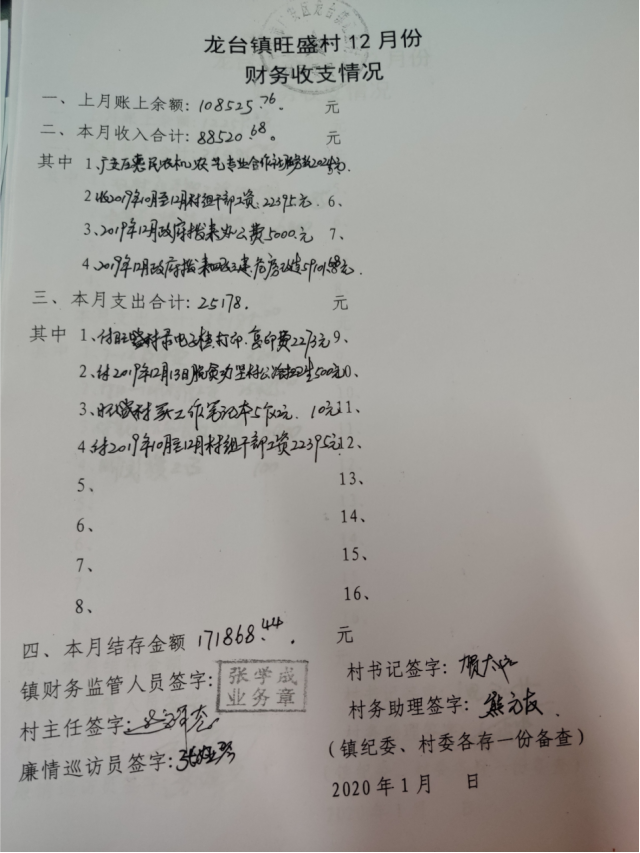 龙台镇旺盛村12月份
财务收支情况
一、上月账上余额:108525.76。 元
二、本月收入合计:88520.68。 元
其中 1、农机农艺专业合作社服务款2024元.
2收2019年10月至12月村组干部工资:22395元. 6、
3、2019年12月政府拨来办公费5000.元 7、
4、2019年12月政府拨来 危房改造59101.68元.
三、本月支出合计:25178. 元
其中 1、付旺盛村 打印.复印费2273元 9、
2、付2019年12月13日脱贫 500元0、
3、旺盛村买工作笔记本5个 10元11、
4、付2019年10月至12月村组干部工资22395元12、
5、 13、
6、 14、
7、 15、
8、 16、
四、本月结存金额 171868.44. 元
镇财务监管人员签字: 张学成 业务章
村书记签字:
村主任签字:
村务助理签字:
廉情巡访员签字:
(镇纪委、村委各存一份备查)
2020年1月 日